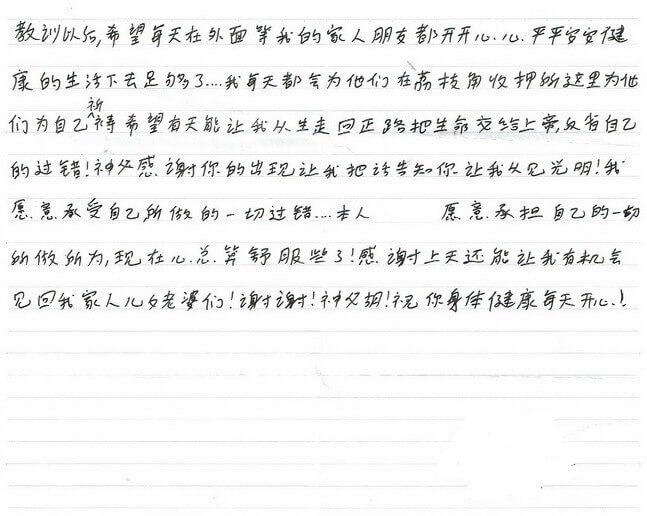 教训以后,希望每天在外面等我的家人朋友都开开心心平平安安健
康的生活下去足够了....我每天都会为他们在荔枝角收押所这里为他
们为自己祈祷希望有天能让我从生走回正路把生命交给上帝,反省自己
的过错!神父感谢你的出现让我把话告知你让我从见光明!我
愿意承受自己所做的一切过错....本人 愿意承担自己的一切
所做所为,现在心总算舒服些了!感谢上天还能让我有机会
见回我家人儿女老婆们!谢谢!神父胡!祝你身体健康每天开心!